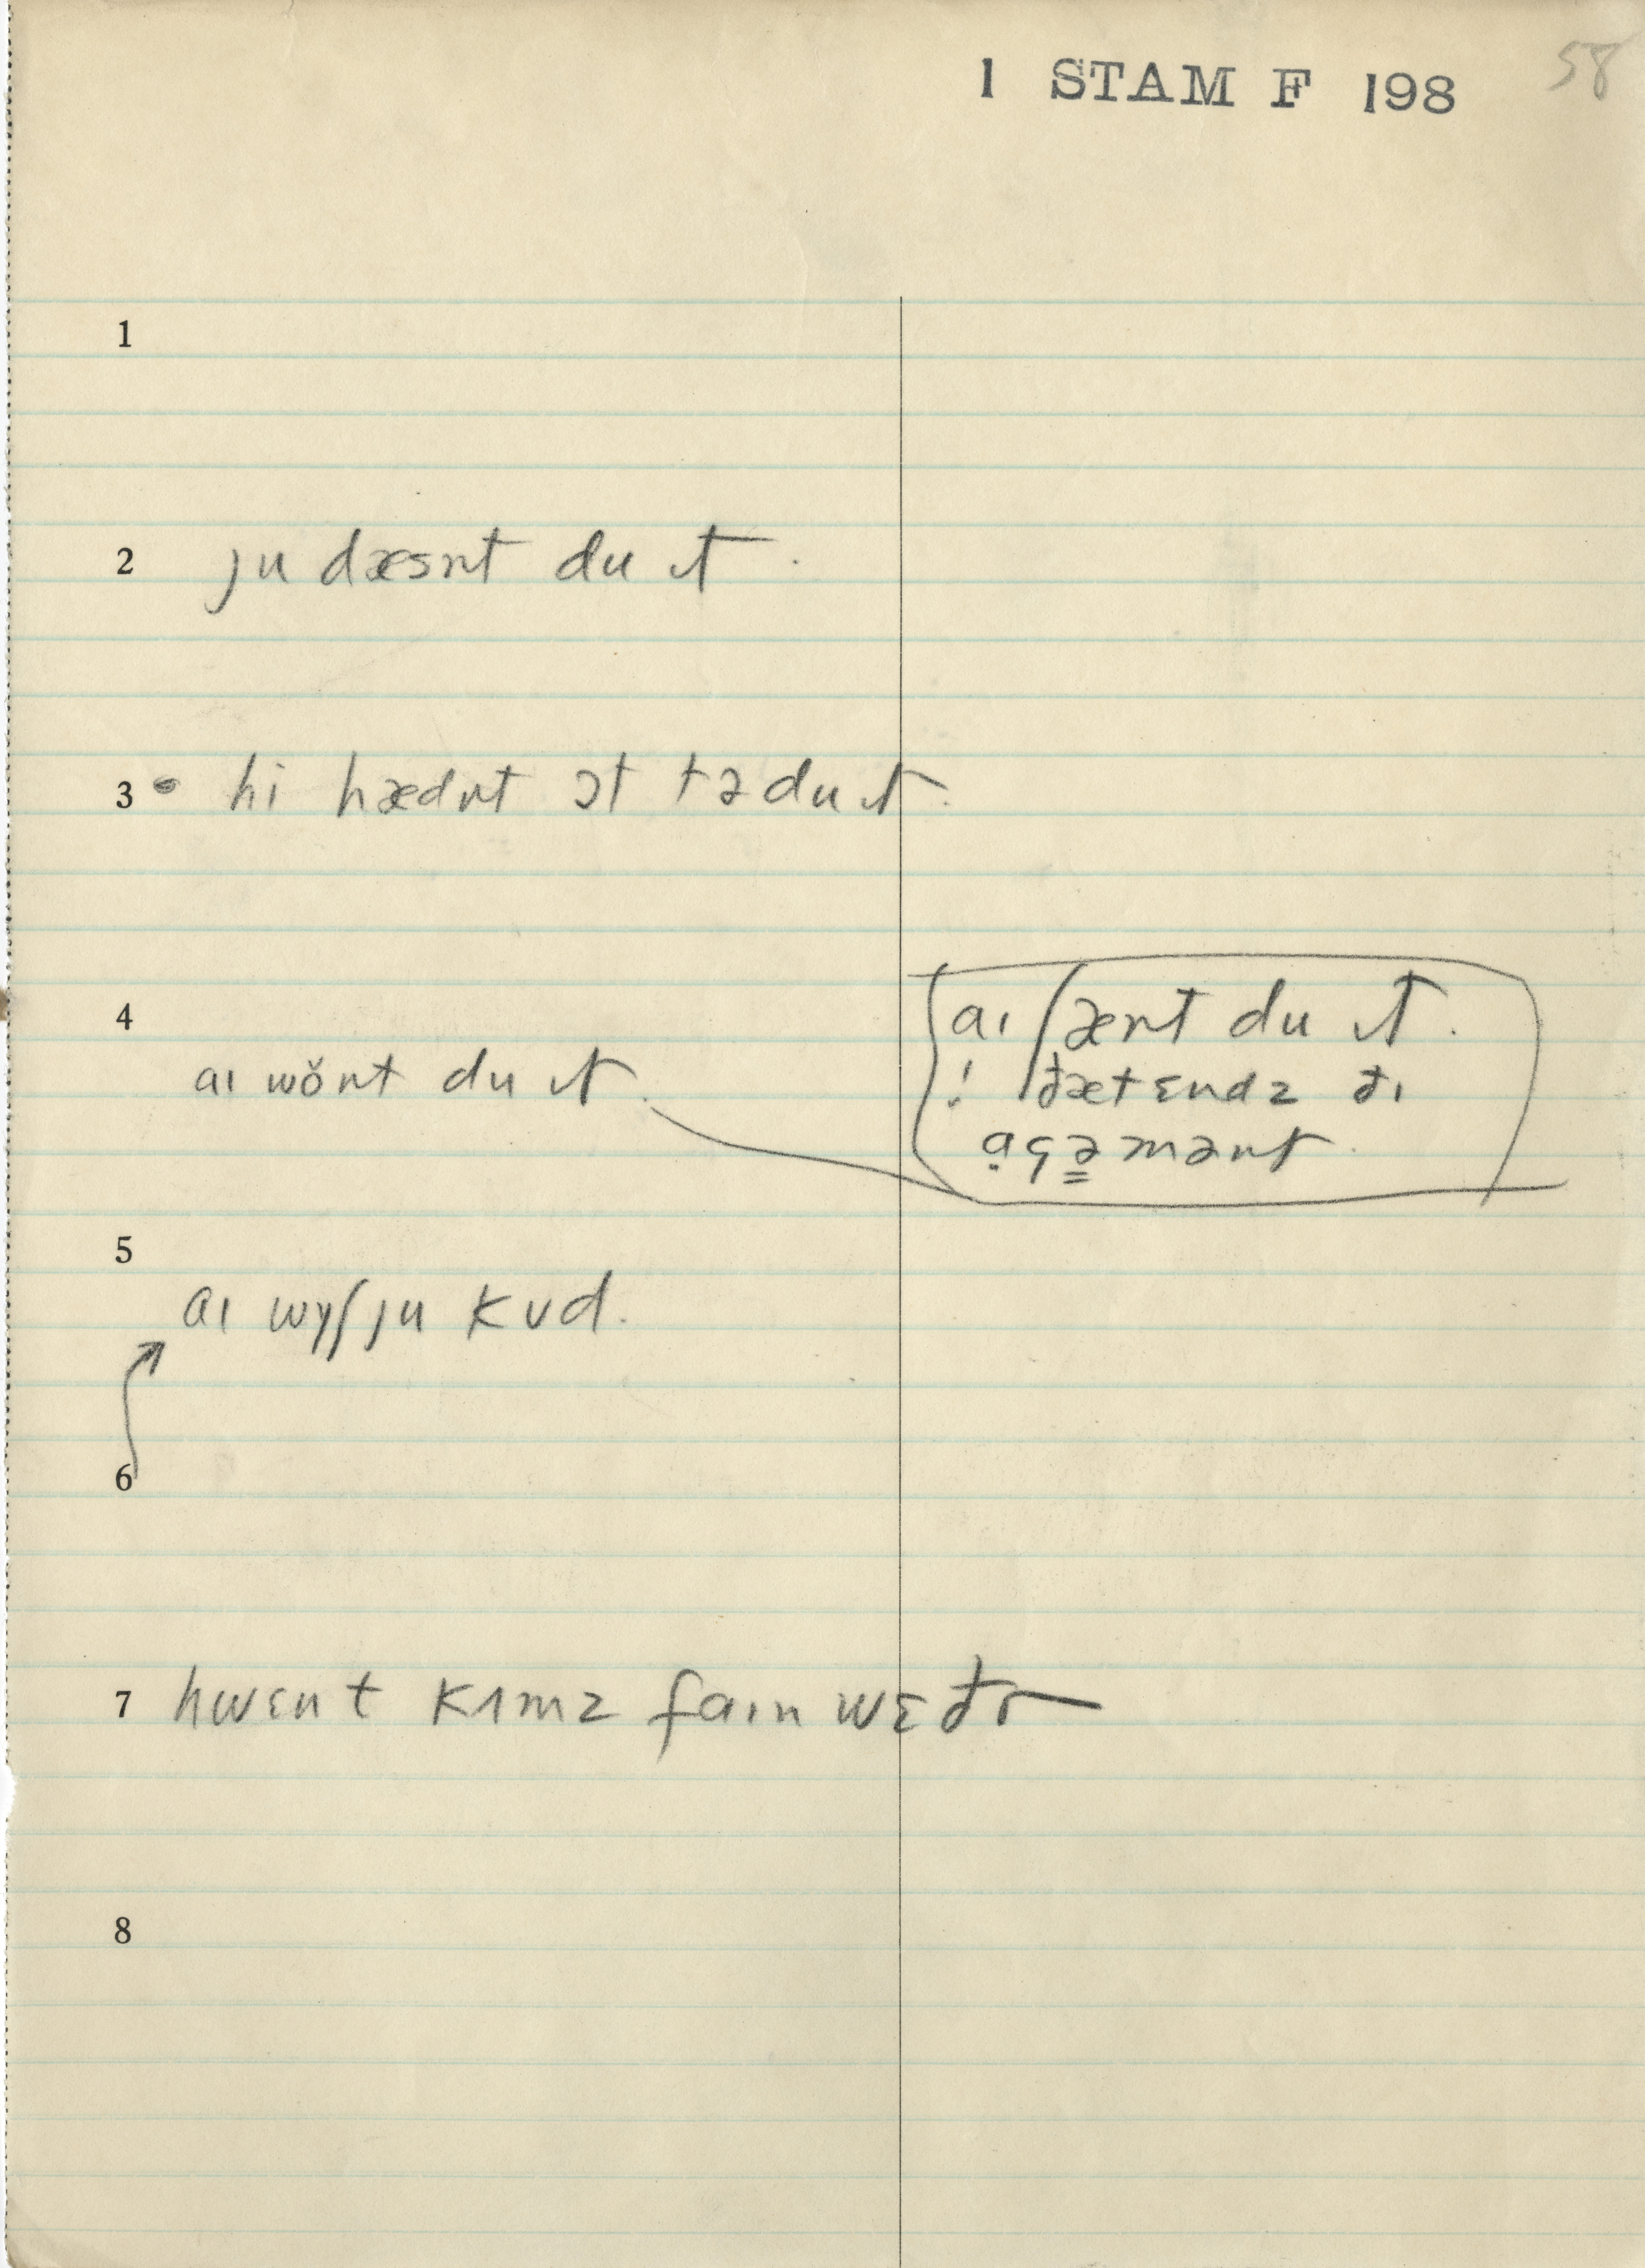 1 STAM F 198 58
1
2 ju dæsnt du ɪt.
3 • hi hædnt ɔt tə du ɪt.
4
aɪ ʃænt du ɪt.
aɪ wŏnt du ɪt.
! đæt ɛndz đɪ
ạɹgə̳mənt.
5
aɪ wɪʃ ju kʊd.
6
7 hwɛn t kʌmz faɪn wɛđɚ
8